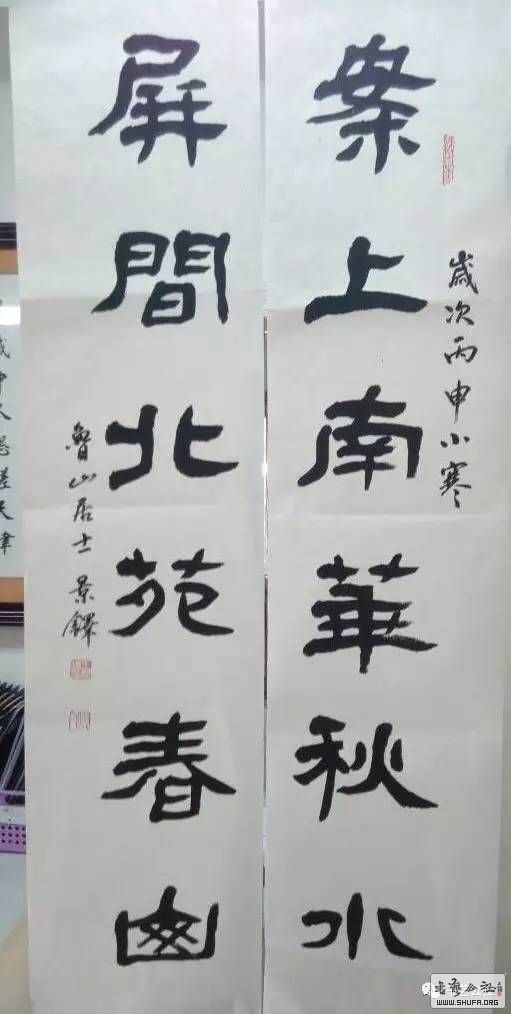 案上南華秋水
歲次丙申小寒
屏間北苑春
魯山居士 景鐸
书艺公社
WWW.SHUFA.ORG